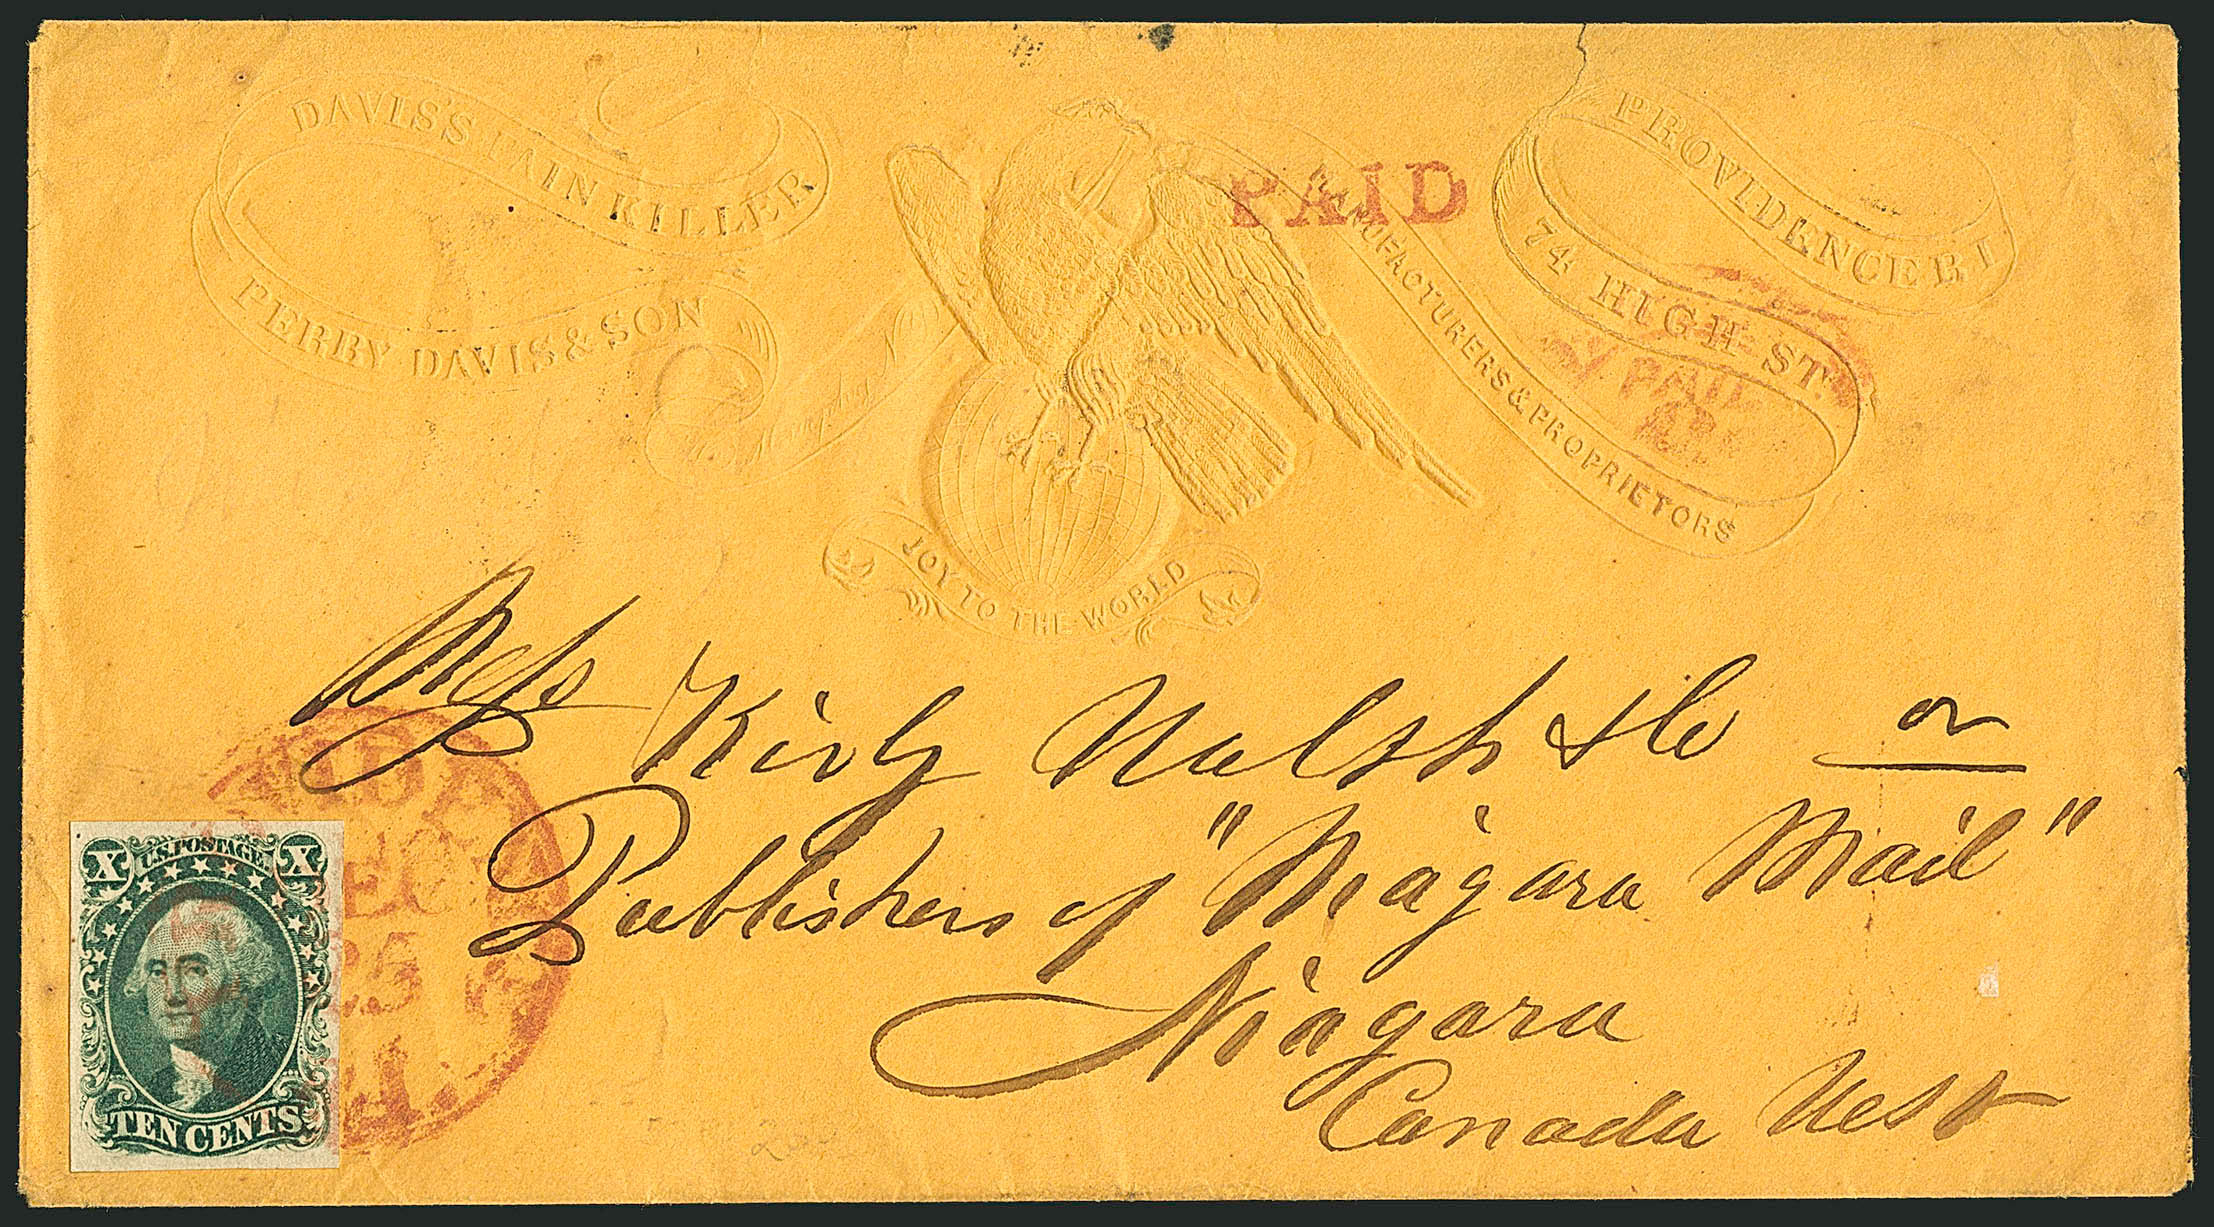 DAVIS'S PAIN KILLER
PERRY DAVIS & SON
MANUFACTURERS & PROPRIETORS
PROVIDENCE R I
74 HIGH ST.
JOY TO THE WORLD
PAID
PAID
Mess Kirly Walsh & Co or
Publishers of "Niagara Mail"
Niagara
Canada West
DEC
25
U.S. POSTAGE.
X X
TEN CENTS